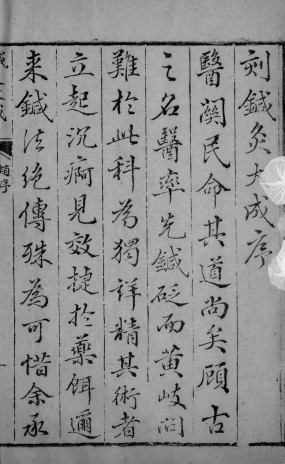 刻鍼灸大成序
醫關民命其道尚矣顧古
之名醫率先鍼砭而黃岐問
難於此科為獨詳精其術者
立起沉痾見效捷於藥餌邇
来鍼法絶傳殊為可惜余承